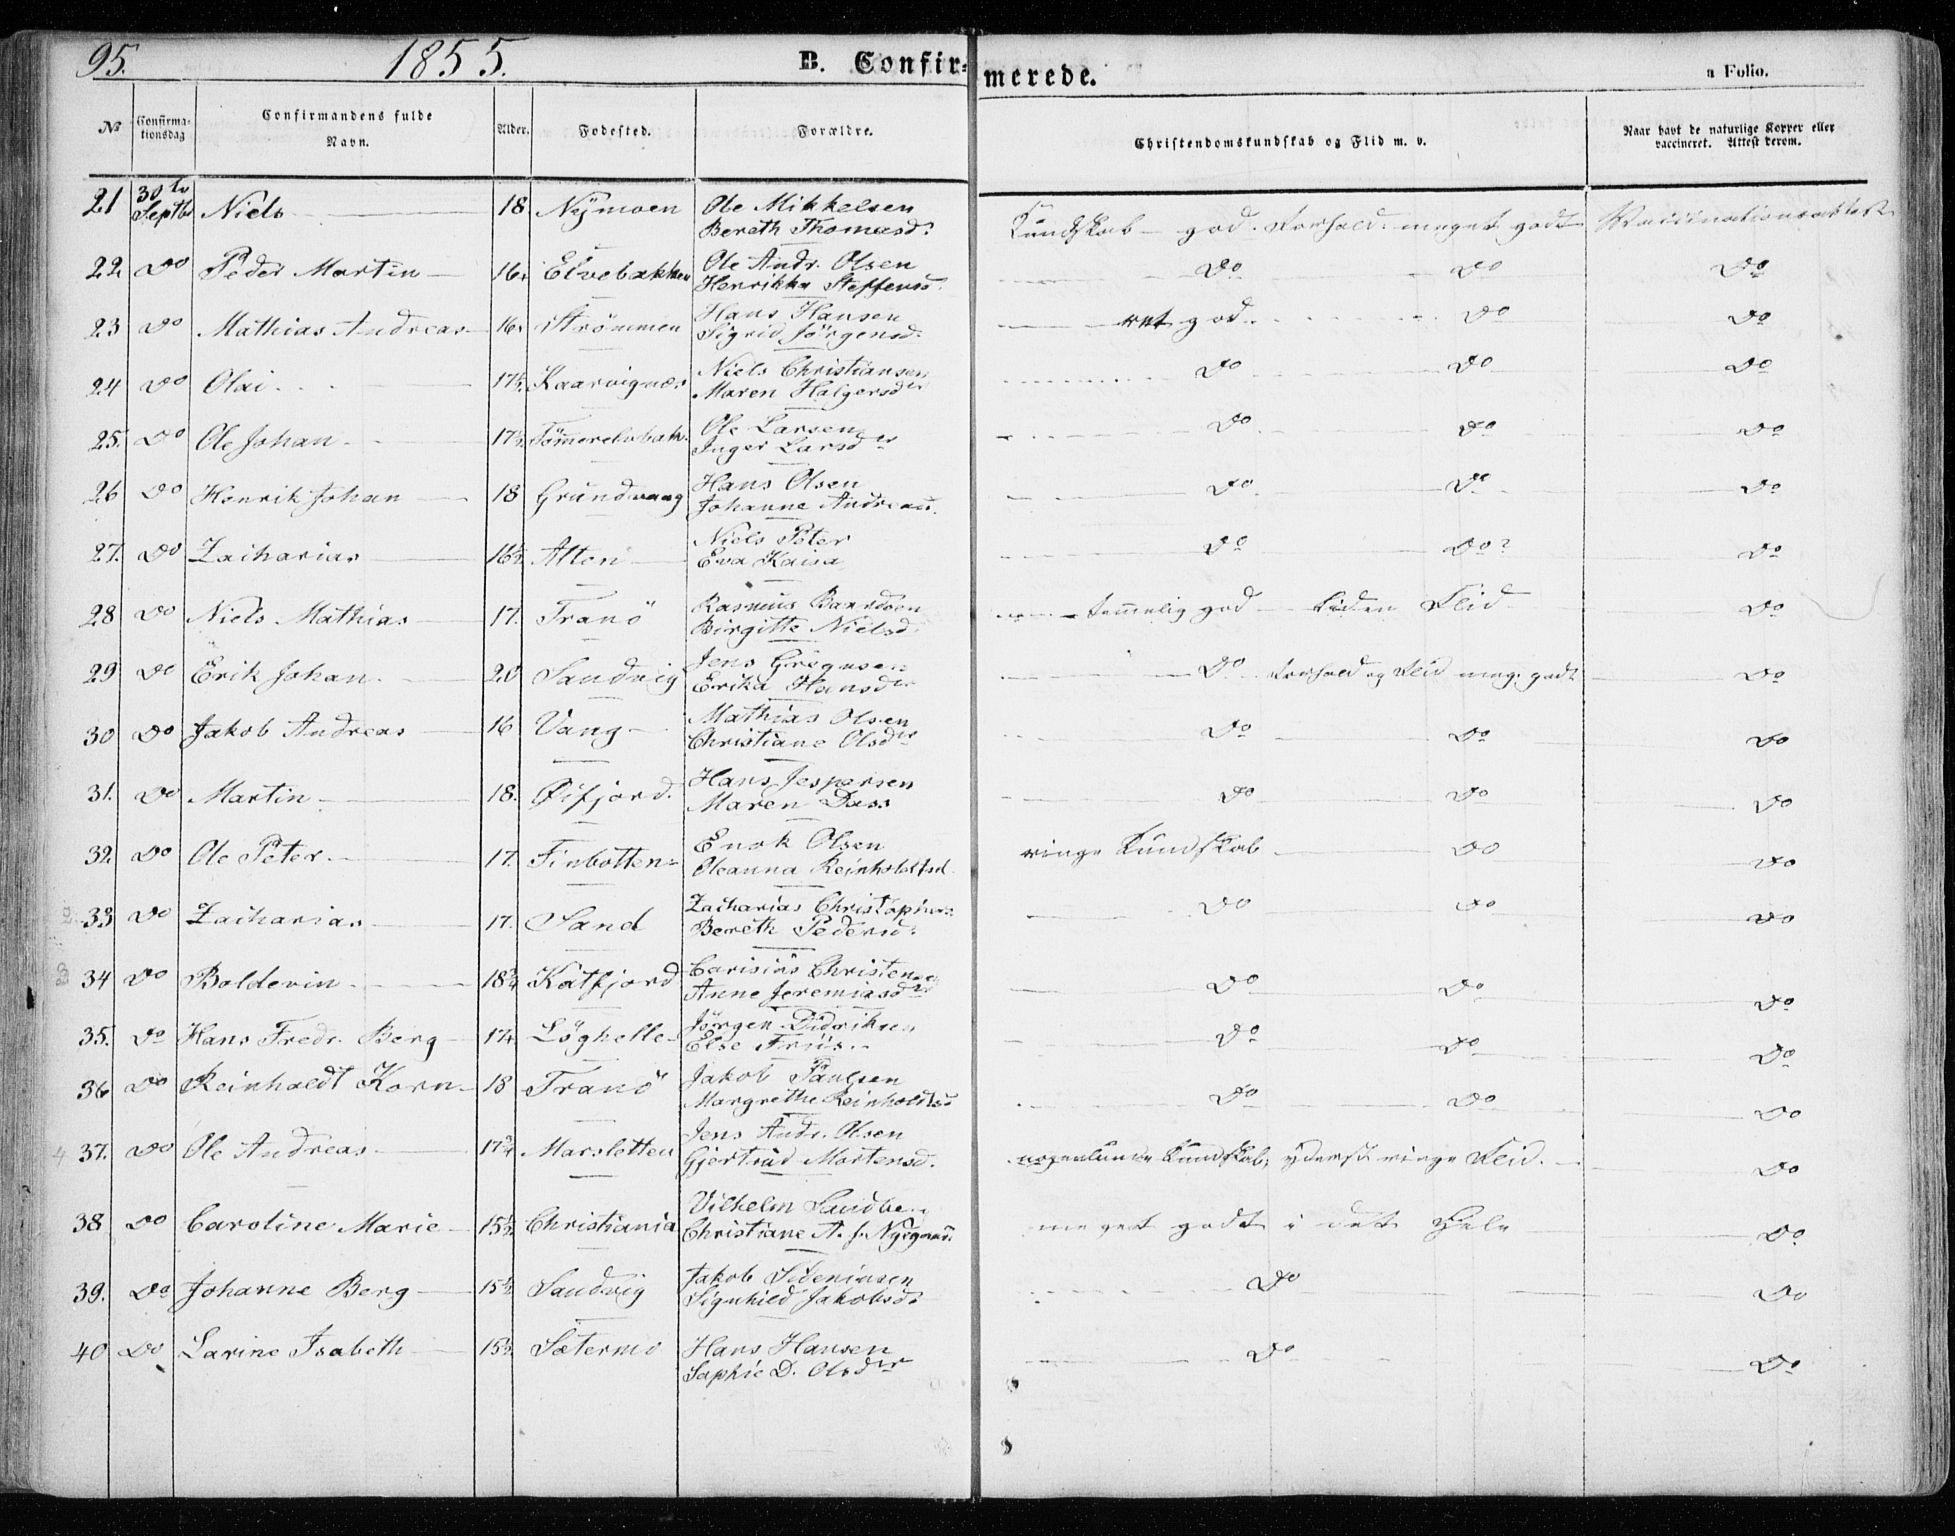 95. 1855. B. Confirmerede. a Folio.
No Confirmationsdag Confirmandens fulde Navn. Alder. Fødested. Forældre. Christendomskundskab og Flid m. v. Naar havt de naturlige Kopper eller vaccineret. Attest derom.
21 30te Septbr Niels 18. Nÿmoen Ole Mikkelsen Kundskab god. Forhold meget godt Vaccinationsattest
Bereth Thomasd.
22 Do Peder Martin 16. Elvebakken Ole Andr. Olsen Do Do Do
Henrikka Steffensd.
23 Do Mathias Andreas 16. Strömmen Hans Hansen ret god Do Do
Sigrid Jörgensd.
24 Do Olai 17½. Kaarvignæs Niels Christiansen Do Do Do
Maren Holgersdr
25. Do Ole Johan 17½ Tömmerelvbak. Ole Larsen Do Do Do
Inger Larsdr
26 Do Henrik Johan 18 Grundvaag Hans Olsen Do Do Do
Johanne Andreasd.
27. Do Zacharias 16½ Alten Niels Peter Do Do? Do
Eva Kaisa
28 Do Niels Mathias 17. Tranö Rasmus Baardsen temmelig god liden Flid Do
Birgitte Nielsd.
29 Do Erik Johan 20 Sandvig Jens Gregusen Do Forhold og Flid meg. godt Do
Erika Hansdr
30 Do Jakob Andreas 16 Vang Mathias Olsen Do Do Do
Christiane Olsdr
31. Do Martin 18. Øifjord. Hans Jespersen Do Do Do
Maren Dass
32. Do Ole Peter 17. Finbotten Enok Olsen ringe Kundskab Do Do
Oleanna Reinholdtsd.
33 Do Zacharias 17. Sand Zacharias Christophers. Do Do Do
Bereth Pedersd.
34 Do Boldevin 18¾ Katfjord Carisius Christensen Do Do Do
Anne Jeremiasdr
35. Do Hans Fredr. Berg 17¼ Löghelle Jörgen Didriksen Do Do Do
Else Friis
36 Do Reinholdt Korn 18 Tranö Jakob Paulsen Do Do Do
Margrethe Reinholdtsd
37. Do Ole Andreas 17¾ Marsletten Jens Andr. Olsen nogenlunde Kundskab, yderst ringe Flid. Do
Gjertrud Mortensd.
38 Do Caroline Marie 15½ Christiania Vilhelm Sandbe meget godt i det Hele Do
Christiane A. f. Nygaard
39. Do Johanne Berg 15½ Sandvig Jakob Sideniusen Do Do
Signhild Jakobsd.
40 Do Larine Isabeth 15½ Sætermo Hans Hansen Do Do
Sophie D. Olsdr